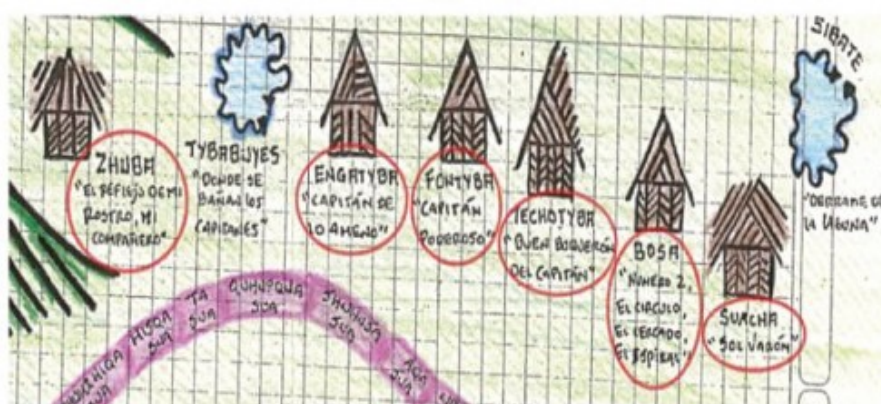 SIBATE
ZHUBA
"EL REFLEJO DE MI
ROSTRO, MI
COMPAÑERO"
TYBABUYES
"DONDE SE
BAÑAN LOS
CAPITANES"
ENGATYBA
"CAPITÁN DE
LO AMENO"
FONTYBA
"CAPITÁN
PODEROSO"
TECHOTYBA
"BUEN BOQUERÓN
DEL CAPITÁN"
BOSA
"NÚMERO 2,
EL CIRCULO,
EL CERCADO,
EL ESPIRAL"
SUACHA
"SOL VARÓN"
"DERRAME DE
LA LAGUNA"
HISQA
SUA
TA
SUA
QUHUPQUA
SUA
SHUHUSA
SUA
ACA
SUA